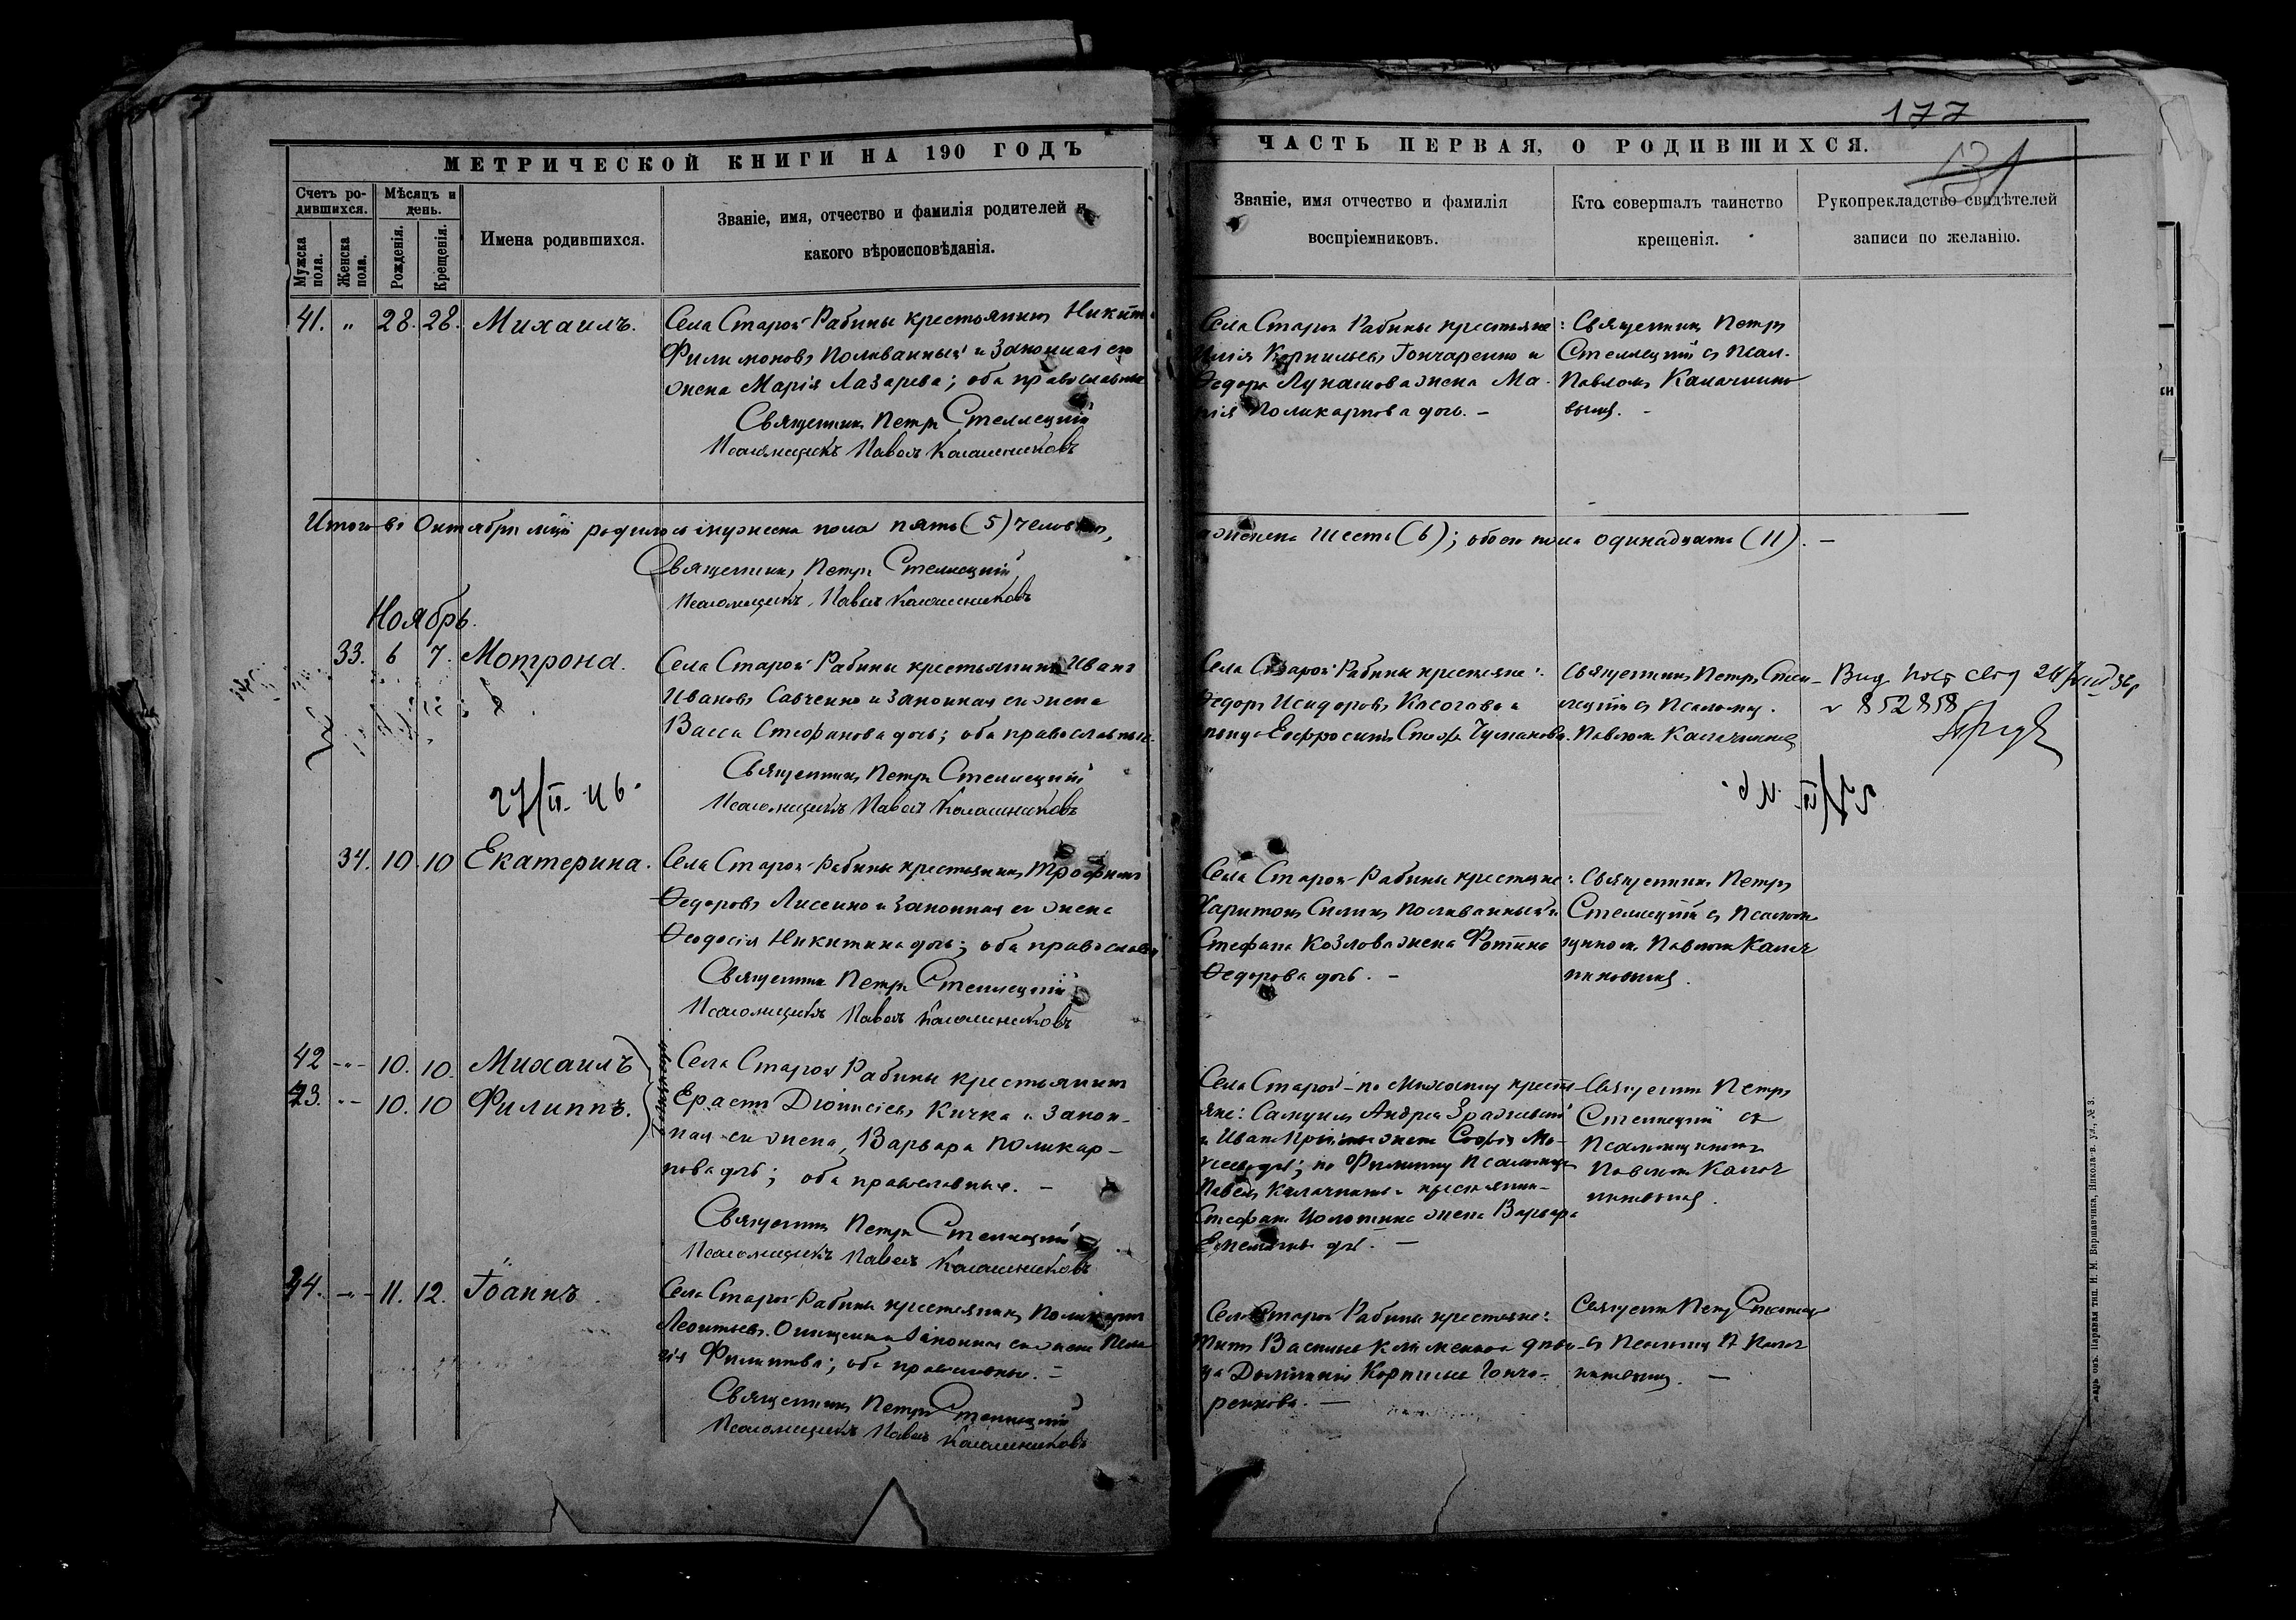 177
131
МЕТРИЧЕСКОЙ КНИГИ НА 190 ГОДЪ
Счетъ ро-
дившихся.
Мѣсяцъ и
день.
Мужска
пола.
Женска
пола.
Рожденія.
Крещенія.
Имена родившихся.
Званіе, имя, отчество и фамилія родителей и
какого вѣроисповѣданія.
41. " 28. 28. Михаилъ.
Села Старой Рабины крестьянинъ Никита
Филимоновъ Поливанный и законная его
жена Марія Лазарева; оба православные
Священникъ Петръ Стеллецкій
Псаломщикъ Павелъ Калашниковъ
Итого въ Октябрѣ мцѣ родилось мужеска пола пять (5) человѣкъ,
Священникъ Петръ Стеллецкій
Псаломщикъ Павелъ Калашниковъ
Ноябрь.
33. 6 7. Мотрона.
Села Старой Рабины крестьянинъ Иванъ
Ивановъ Савченко и законная его жена
Васса Стефанова дочь; оба православные.
Священникъ Петръ Стеллецкій
Псаломщикъ Павелъ Калашниковъ
27/II. 46.
34. 10. 10 Екатерина.
Села Старой Рабины крестьянинъ Трофимъ
Ѳедоровъ Лисенко и законная его жена
Ѳеодосія Никитина дочь; оба православн
Священникъ Петръ Стеллецкій
Псаломщикъ Павелъ Калашниковъ
42 -"- 10. 10. Михаилъ
43. -"- 10. 10 Филиппъ.
Села Старой Рабины крестьянинъ
Ерастъ Діонисіевъ Кичка и закон-
ная его жена, Варвара Поликар-
пова дочь; оба православные. -
Священникъ Петръ Стеллецкій
Псаломщикъ Павелъ Калашниковъ
44. -"- 11. 12. Іоаннъ.
Села Старой Рабины крестьянинъ Поликарпъ
Леонтьевъ законная его жена Пела
гія Филиппова; оба православные. -
Священникъ Петръ Стеллецкій
Псаломщикъ Павелъ Калашниковъ
ЧАСТЬ ПЕРВАЯ, О РОДИВШИХСЯ.
Званіе, имя отчество и фамилія
воспріемниковъ.
Кто совершалъ таинство
крещенія.
Рукоприкладство свидѣтелей
записи по желанію.
Села Старой Рабины крестьяне:
Илія Корнильевъ Гончаренко и
Ѳедора Лукашова жена Ма-
рія Поликарпова дочь. -
Священникъ Петръ
Стеллецкій съ Псал.
Павломъ Калашнико
вымъ. -
а женска шесть (6); обоего пола одинадцать (11). -
Села Старой Рабины крестьяне:
Ѳедоръ Исидоровъ и
Евфросинія Стеф. Чумакова.
Священникъ Петръ Стел-
лецкій съ Псаломщ.
Павломъ
852858
27/II 46.
Села Старой Рабины крестьяне:
Харитонъ Силинъ Поливанный и
Стефана Козлова жена Фотина
Ѳедорова дочь. -
Священникъ Петръ
Стеллецкій съ Псалом
щикомъ Павломъ Калаш
никовымъ.
Села Старой - по Михаилу крестья
яне: Самуилъ Андреевъ
и Ивана жена Софія Мо-
дочь; по Филиппу Псаломщ
Павелъ и крестьянина
Стефана жена Варвара
дочь. -
Священникъ Петръ
Стеллецкій съ
Псаломщикомъ
Павломъ Калаш
никовымъ.
Села Старой Рабины крестьяне:
Титъ Васильевъ Клименко и дѣви
ца Домникія Корнильева Гонча-
ренкова. -
Священ. Петръ Стеллецк
съ Псаломщ. П. Калаш
никовымъ. -
Паровая тип. И. М. Варшавчика, Никола-в. ул., № 3.